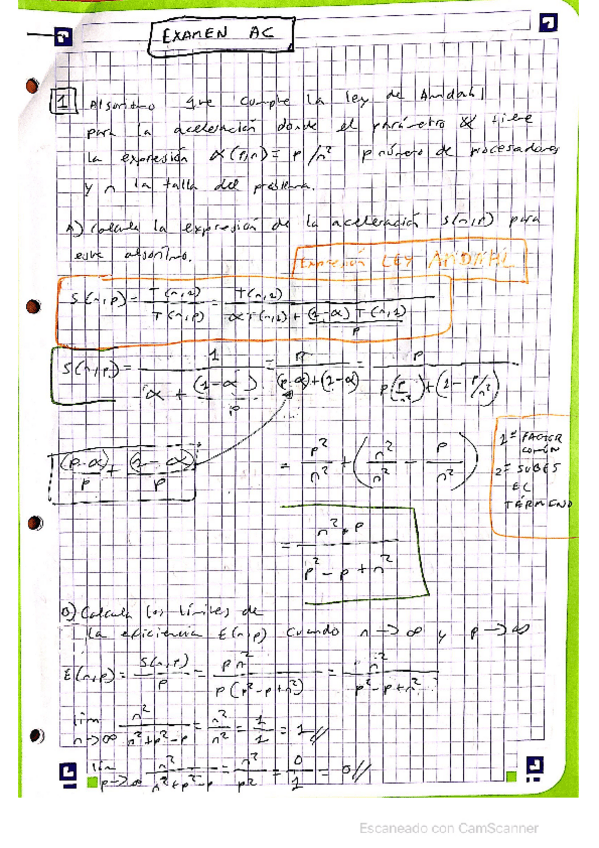 EXAMEN AC
1 Algoritmo que cumple la ley de Amdahl
para la aceleración donde el parámetro α tiene
la expresión α(p,n) = p/n² p número de procesadores
y n la talla del problema.
A) Calcula la expresión de la aceleración S(n,p) para
este algoritmo.
Expresión LEY AMDAHL
S(n,p) = T(n,1) / T(n,p) = T(n,1) / αT(n,1) + (1-α) T(n,1) / p
S(n,p) = 1 / α + (1-α) / p = p / (p·α)+(1-α) = p / p(p/n²)+(1-p/n²)
(p·α)/p + (1-α)/p
= p²/n² + (n²/n² - p/n²)
1º FACTOR
COMÚN
2º SUBES
EL
TÉRMINO
= n²·p / p²-p+n²
B) Calcula los límites de
la eficiencia E(n,p) cuando n→∞ y p→∞
E(n,p) = S(n,p)/p = pn² / p(p²-p+n²) = n² / p²-p+n²
lim n→∞ n² / n²+p²-p = n²/n² = 1/1 = 1//
lim p→∞ n² / n²+p²-p = n²/p² = 0/1 = 0//
Escaneado con CamScanner